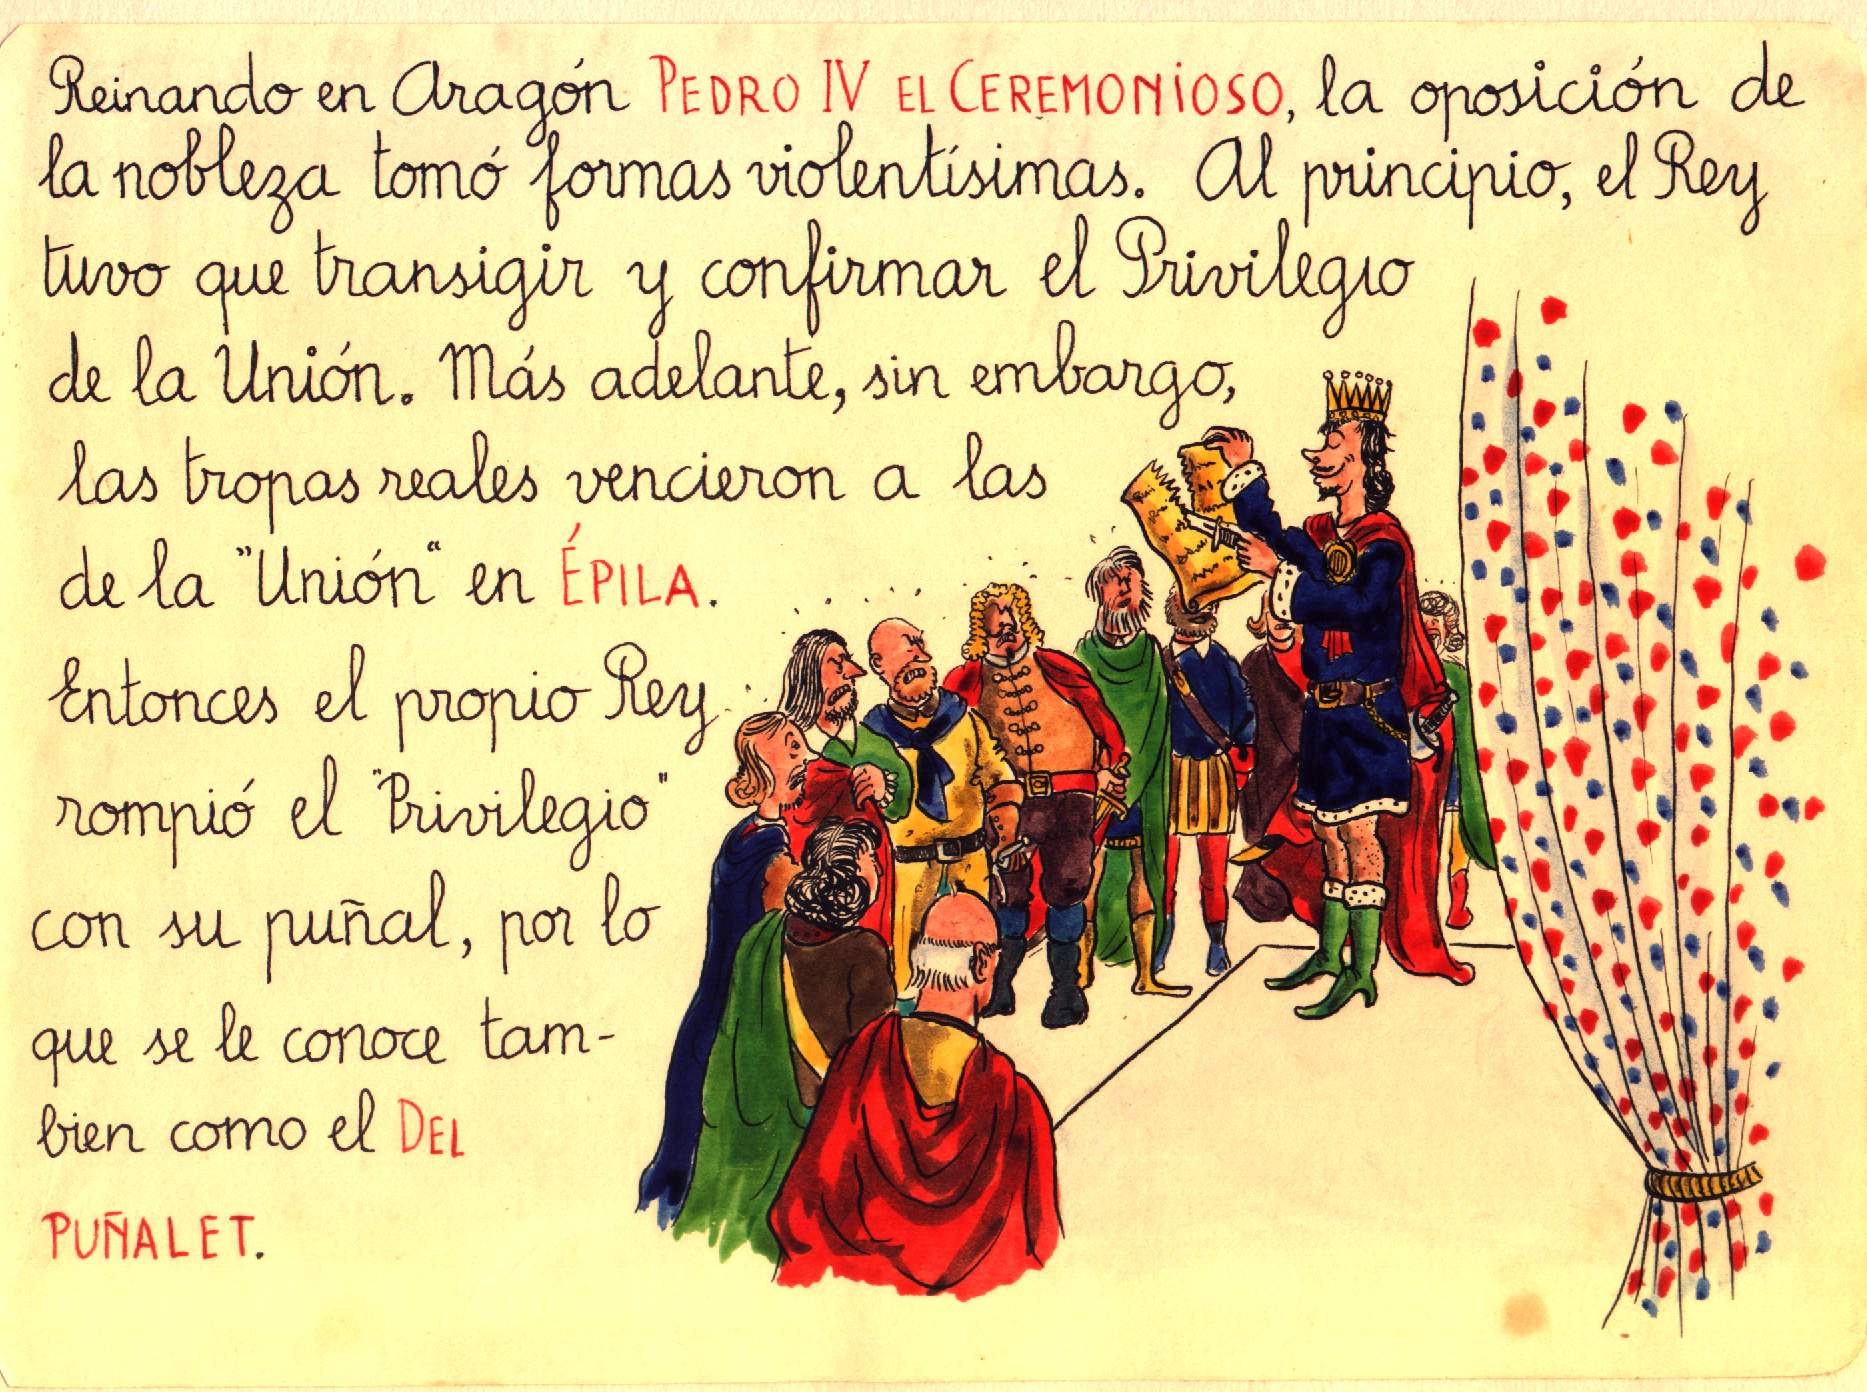 Reinando en Aragón PEDRO IV EL CEREMONIOSO, la oposición de
la nobleza tomó formas violentísimas. Al principio, el Rey
tuvo que transigir y confirmar el Privilegio
de la Unión. Más adelante, sin embargo,
las tropas reales vencieron a las
de la "Unión" en ÉPILA.
Entonces el propio Rey
rompió el "Privilegio"
con su puñal, por lo
que se le conoce tam-
bien como el DEL
PUÑALET.